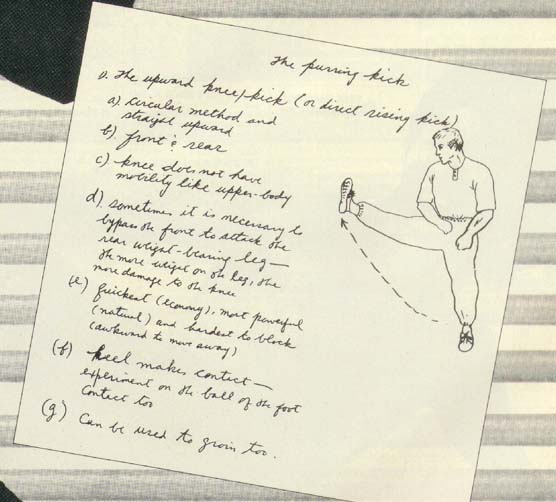 The purring kick
1. The upward knee/kick (or direct rising kick)
a). circular method and
straight upward
b) front & rear
c) knee does not have
mobility like upper-body
d). sometimes it is necessary to
bypass the front to attack the
rear weight-bearing leg —
the more weight on the leg, the
more damage to the knee
(e) quickest (economy), most powerful
(natural) and hardest to block
(awkward to move away)
(f) heel makes contact —
experiment on the ball of the foot
contact too
(g) Can be used to groin too.